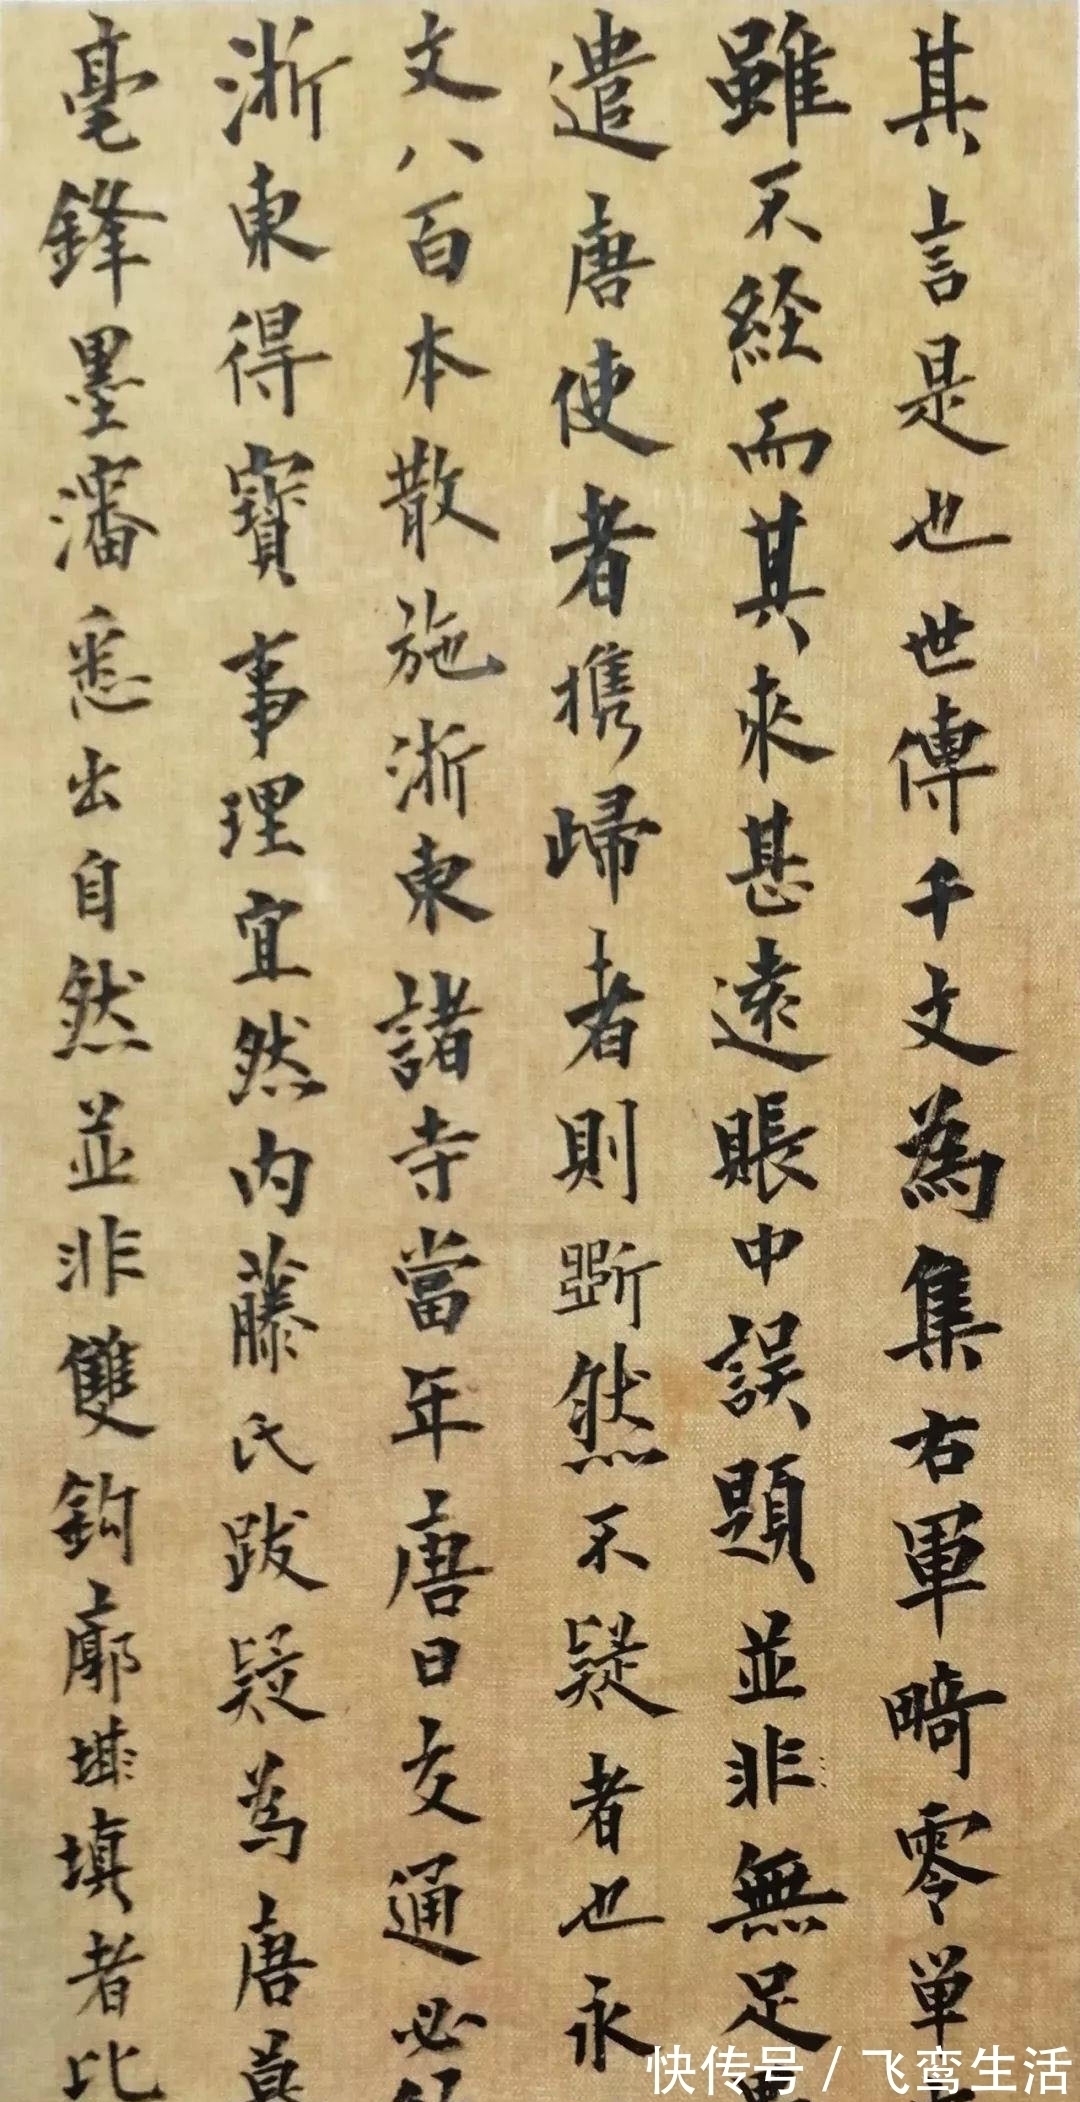 其言是也世傳千文為集右軍畸零単
雖不経而其來甚遠賬中誤題並非無足
遣唐使者携歸者則斷然不疑者也永
文八百本散施浙東諸寺當年唐日交通必
浙東得寶事理宜然内藤氏跋疑為唐真
毫鋒墨瀋悉出自然並非雙鈎廓填者比
快传号/飞鸾生活